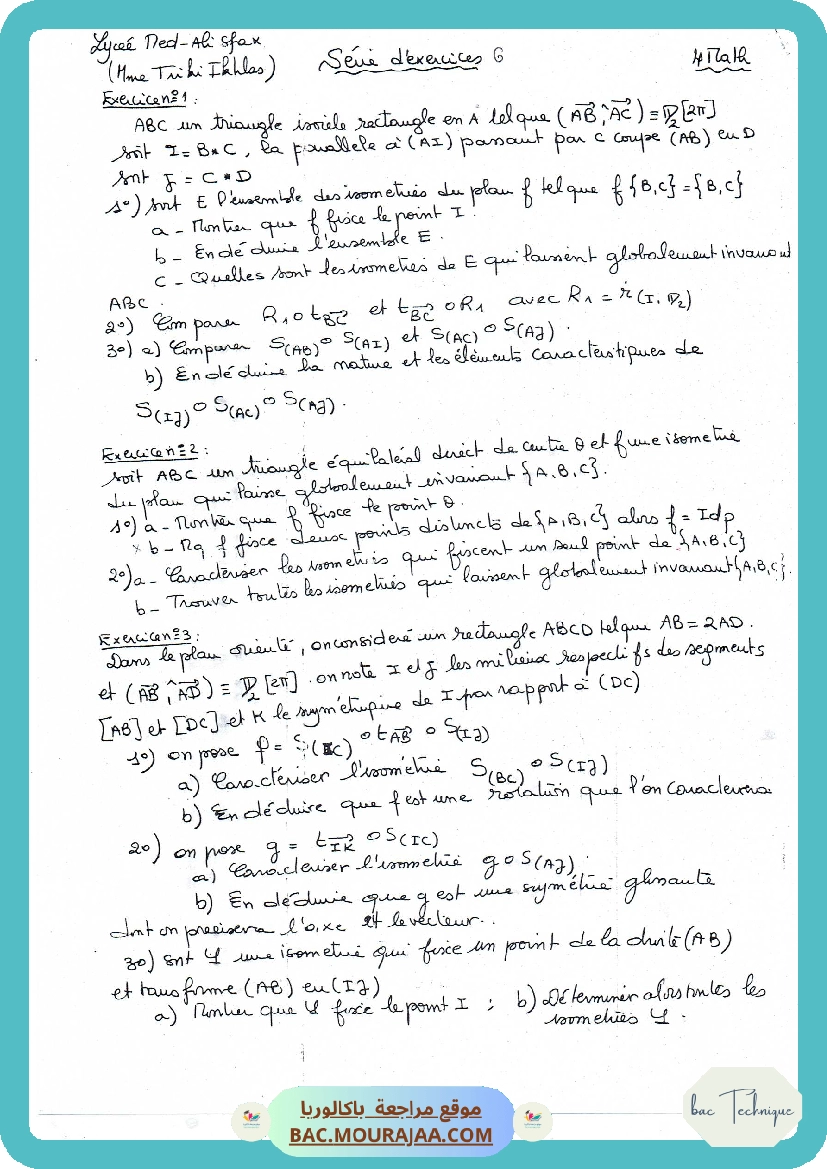 Lycée Med-Ali Sfax
(Mme Triki Ikhlas)
Série d'exercices 6
4 Math
Exercice n°1 :
ABC un triangle isocèle rectangle en A tel que (AB ̂, AC) ≡ π/2 [2π]
soit I = B*C, la parallèle à (AI) passant par C coupe (AB) en D
soit J = C*D
1°) soit E l'ensemble des isométries du plan f tel que f{B,C} = {B,C}
a - Montrer que f fixe le point I.
b - En déduire l'ensemble E.
c - Quelles sont les isométries de E qui laissent globalement invariant
ABC.
2°) Comparer R₁ o t BC et t BC o R₁ avec R₁ = r (I, π/2)
3°) a) Comparer S(AB) o S(AI) et S(AC) o S(AJ).
b) En déduire la nature et les éléments caractéristiques de
S(IJ) o S(AC) o S(AJ).
Exercice n°2 :
soit ABC un triangle équilatéral direct de centre O et f une isométrie
du plan qui laisse globalement invariant {A,B,C}.
1°) a - Montrer que f fixe le point O.
x b - Mq f fixe deux points distincts de {A,B,C} alors f = Idp
2°) a - Caractériser les isométries qui fixent un seul point de {A,B,C}
b - Trouver toutes les isométries qui laissent globalement invariant {A,B,C}.
Exercice n°3 :
Dans le plan orienté, on considère un rectangle ABCD tel que AB = 2AD.
et (AB ̂, AD) ≡ π/2 [2π] on note I et J les milieux respectifs des segments
[AB] et [DC] et K le symétrique de I par rapport à (DC)
1°) on pose f = S( C) o t AB o S(IJ)
a) Caractériser l'isométrie S(BC) o S(IJ)
b) En déduire que f est une rotation que l'on caractérisera
2°) on pose g = t IK o S(IC)
a) Caractériser l'isométrie g o S(AJ)
b) En déduire que g est une symétrie glissante
dont on précisera l'axe et le vecteur..
3°) soit φ une isométrie qui fixe un point de la droite (AB)
et transforme (AB) en (IJ)
a) Montrer que φ fixe le point I ; b) Déterminer alors toutes les
isométries φ.
موقع مراجعة باكالوريا
BAC.MOURAJAA.COM
bac Technique